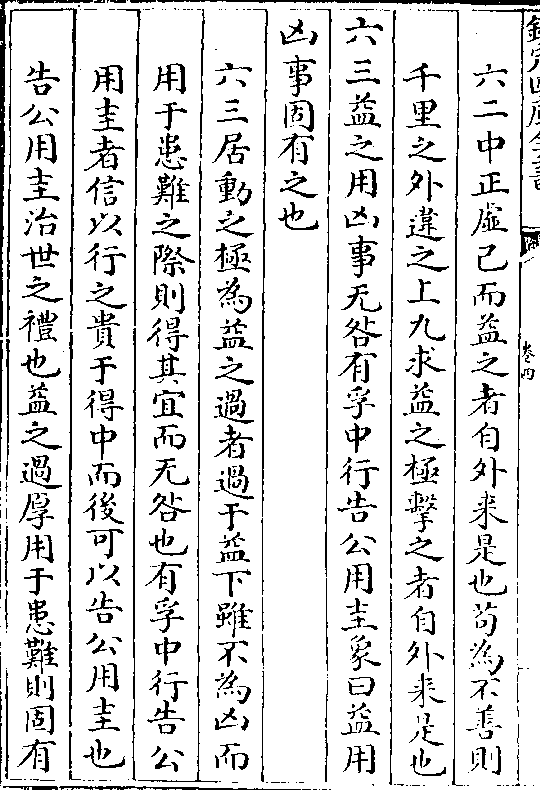 欽定四庫全書
卷四
六二中正虛己而益之者自外来是也苟為不善則
千里之外違之上九求益之極擊之者自外来是也
六三益之用凶事无咎有孚中行告公用圭象曰益用
凶事固有之也
六三居動之極為益之過者過于益下雖不為凶而
用于患難之際則得其宜而无咎也有孚中行告公
用圭者信以行之貴于得中而後可以告公用圭也
告公用圭治世之禮也益之過厚用于患難則固有